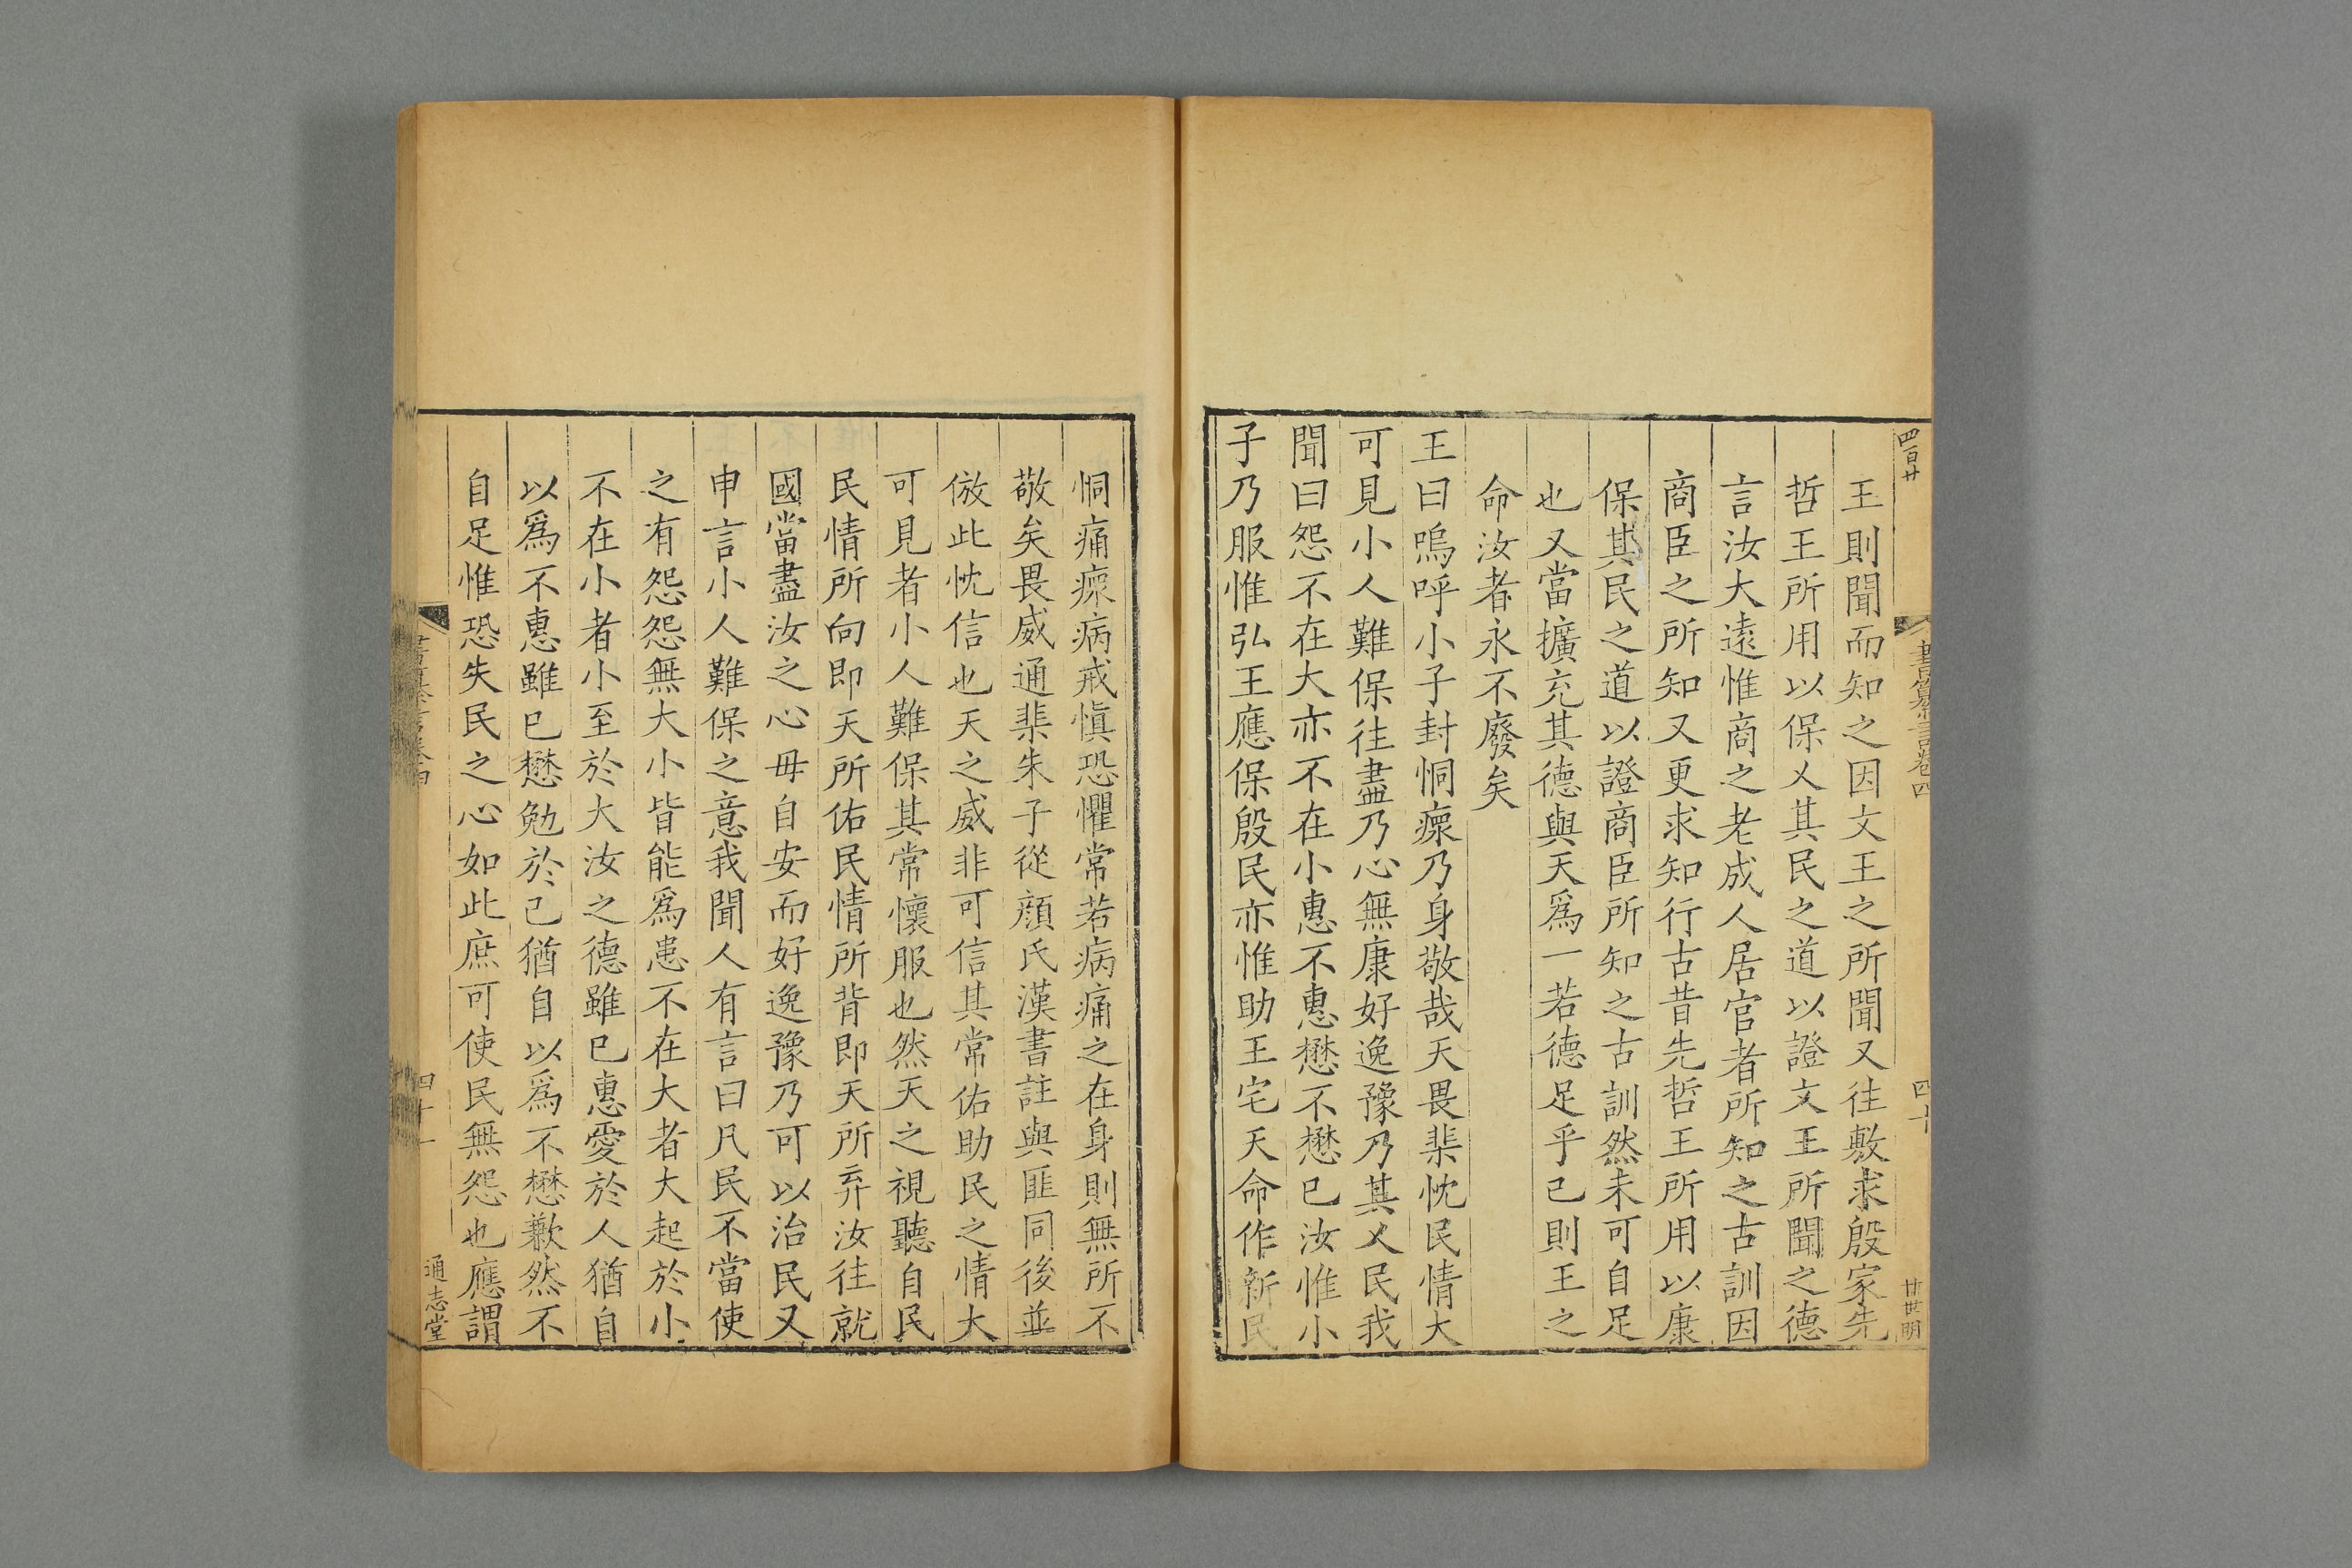 四百廿
書纂言卷四
四十
甘世明
王則聞而知之因文王之所聞又往敷求殷家先
哲王所用以保乂其民之道以證文王所聞之德
言汝大遠惟商之老成人居官者所知之古訓因
商臣之所知又更求知行古昔先哲王所用以康
保其民之道以證商臣所知之古訓然未可自足
也又當擴充其德與天爲一若德足乎己則王之
命汝者永不廢矣
王曰嗚呼小子封恫瘝乃身敬哉天畏棐忱民情大
可見小人難保往盡乃心無康好逸豫乃其乂民我
聞曰怨不在大亦不在小惠不惠懋不懋巳汝惟小
子乃服惟弘王應保殷民亦惟助王宅天命作新民
恫痛瘝病戒愼恐懼常若病痛之在身則無所不
敬矣畏威通棐朱子從顔氏漢書註與匪同後並
倣此忱信也天之威非可信其常佑助民之情大
可見者小人難保其常懷服也然天之視聽自民
民情所向即天所佑民情所背即天所弃汝往就
國當盡汝之心毋自安而好逸豫乃可以治民又
申言小人難保之意我聞人有言曰凡民不當使
之有怨怨無大小皆能爲患不在大者大起於小
不在小者小至於大汝之德雖巳惠愛於人猶自
以爲不惠雖巳懋勉於己猶自以爲不懋歉然不
自足惟恐失民之心如此庶可使民無怨也應謂
書纂言卷四
四十一
通志堂